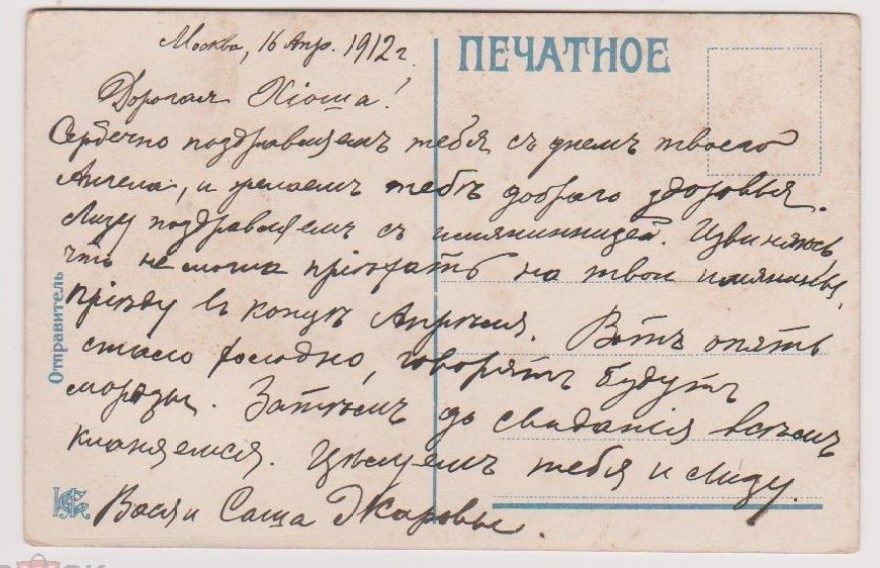 Москва, 16 Апр. 1912 г.
ПЕЧАТНОЕ
Дорогая Ксюша!
Сердечно поздравляемъ тебя съ днемъ твоего
Ангела, и желаемъ тебѣ добраго здоровья.
Лизу поздравляемъ съ имянинницей. Извиняюсь,
что не могла пріѣхать на твои имянины,
пріѣду въ концѣ Апрѣля. Вотъ опять
стало холодно, говорятъ будутъ
морозы. Затѣмъ до свиданія всѣмъ
кланяемся. Цѣлуемъ тебя и Лизу.
Вася и Саша
Отправитель